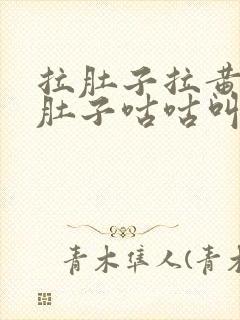 拉肚子拉黄
肚子咕咕叫
青木隼人(青木